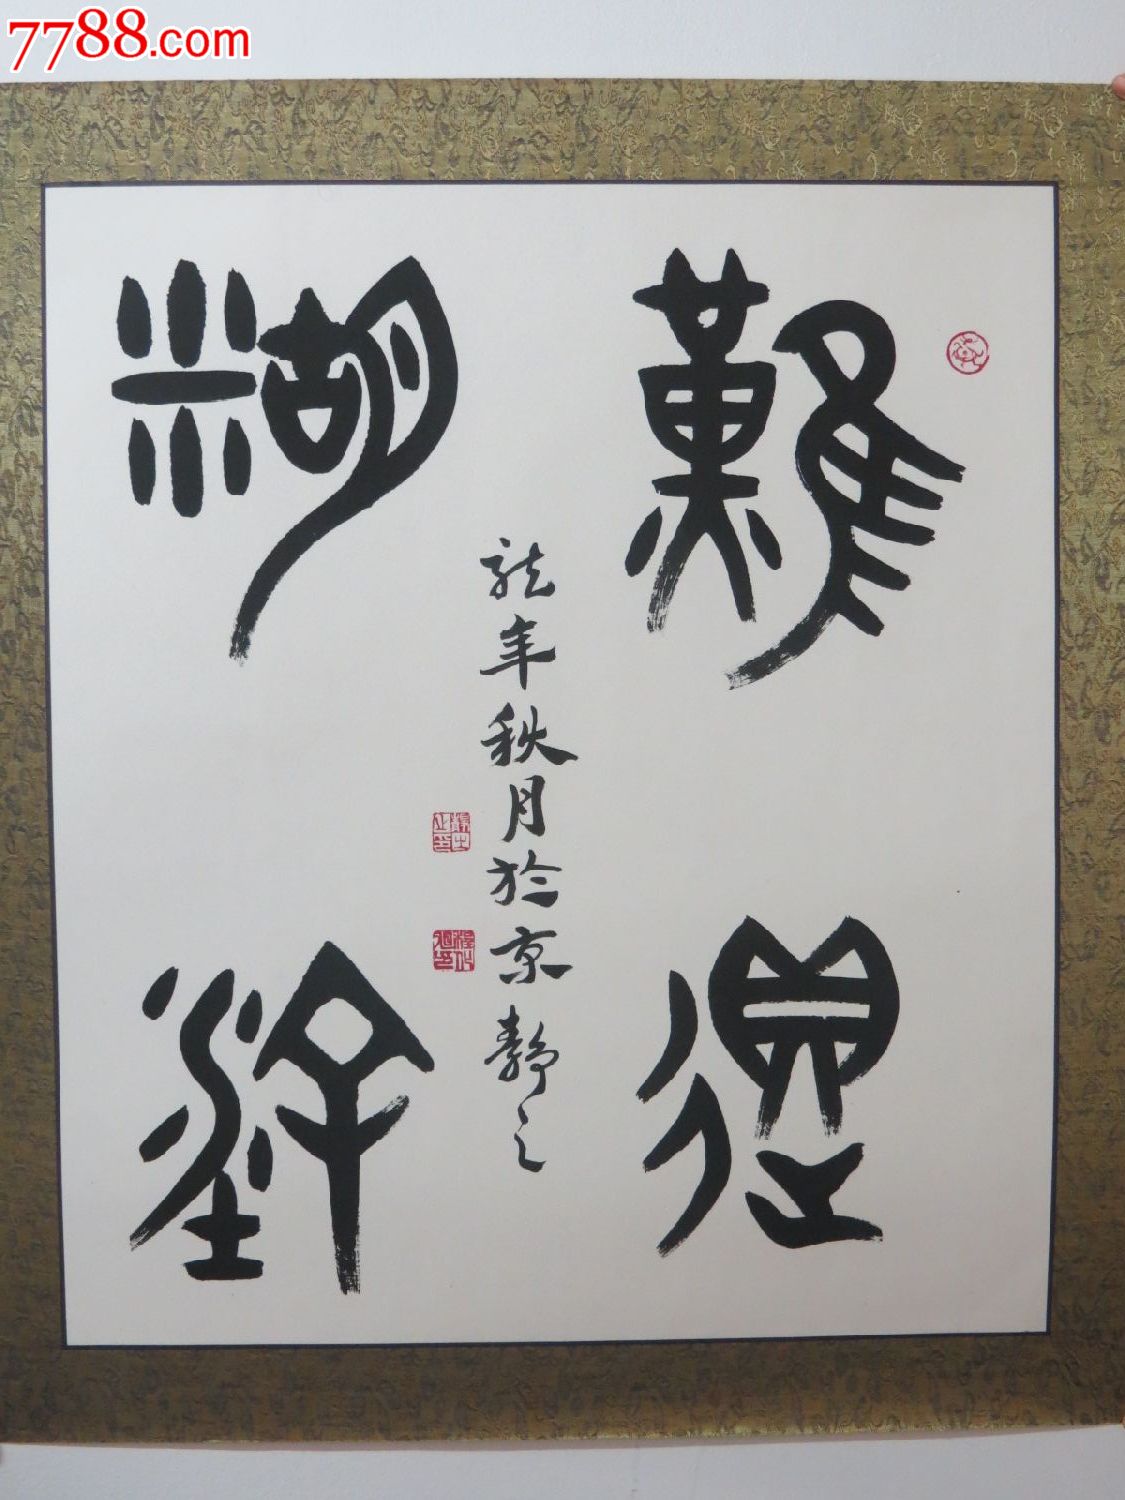 7788.com
難得
糊塗
龙年秋月於京静之